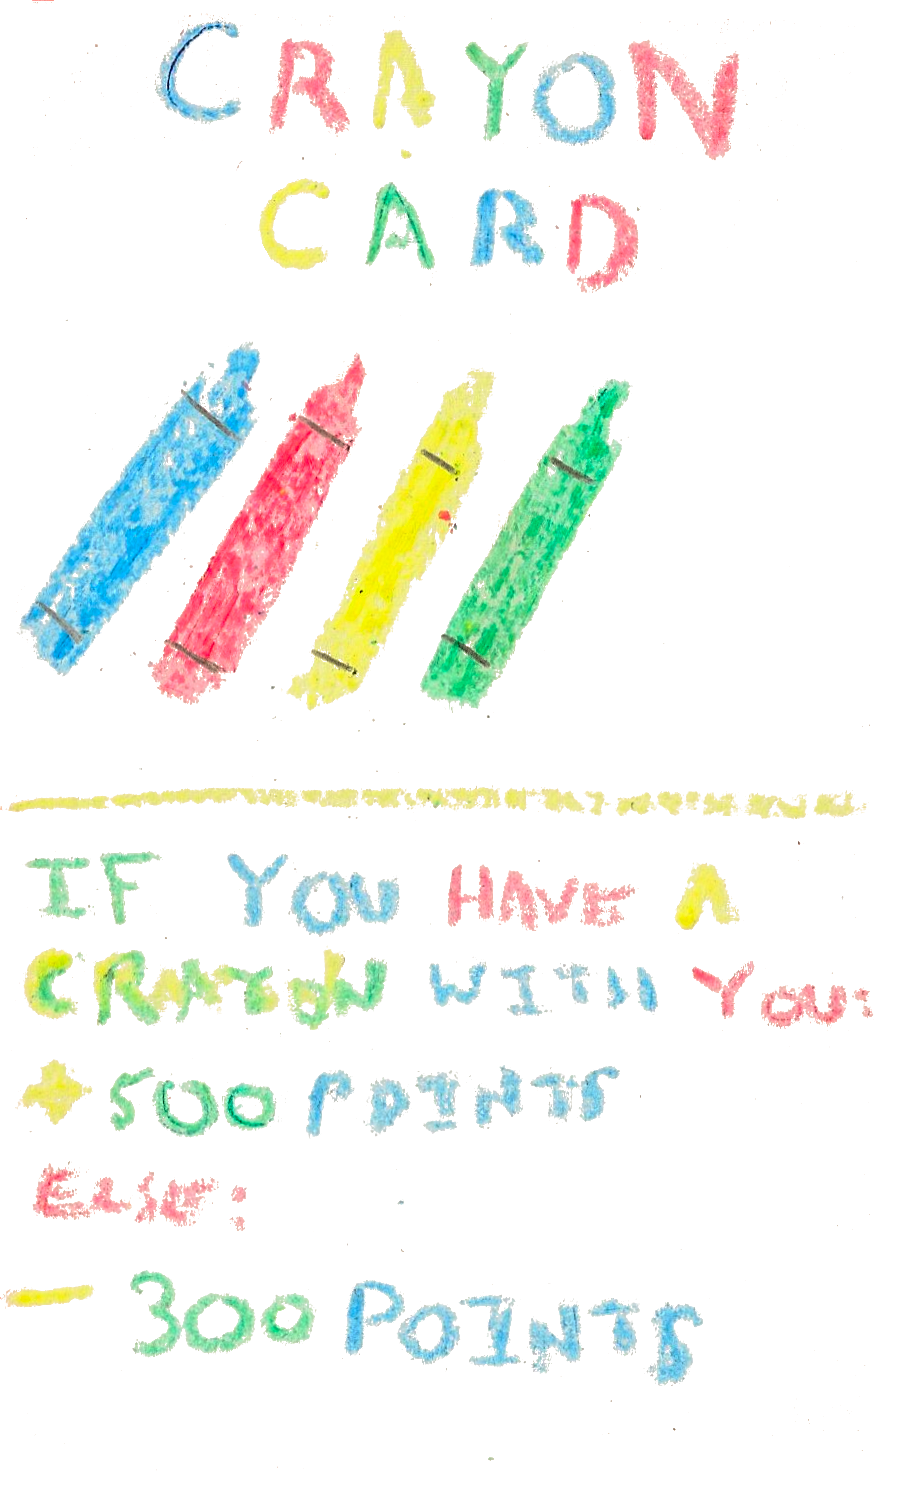 CRAYON
CARD
IF YOU HAVE A
CRAYON WITH YOU:
+500 POINTS
ELSE:
- 300 POINTS